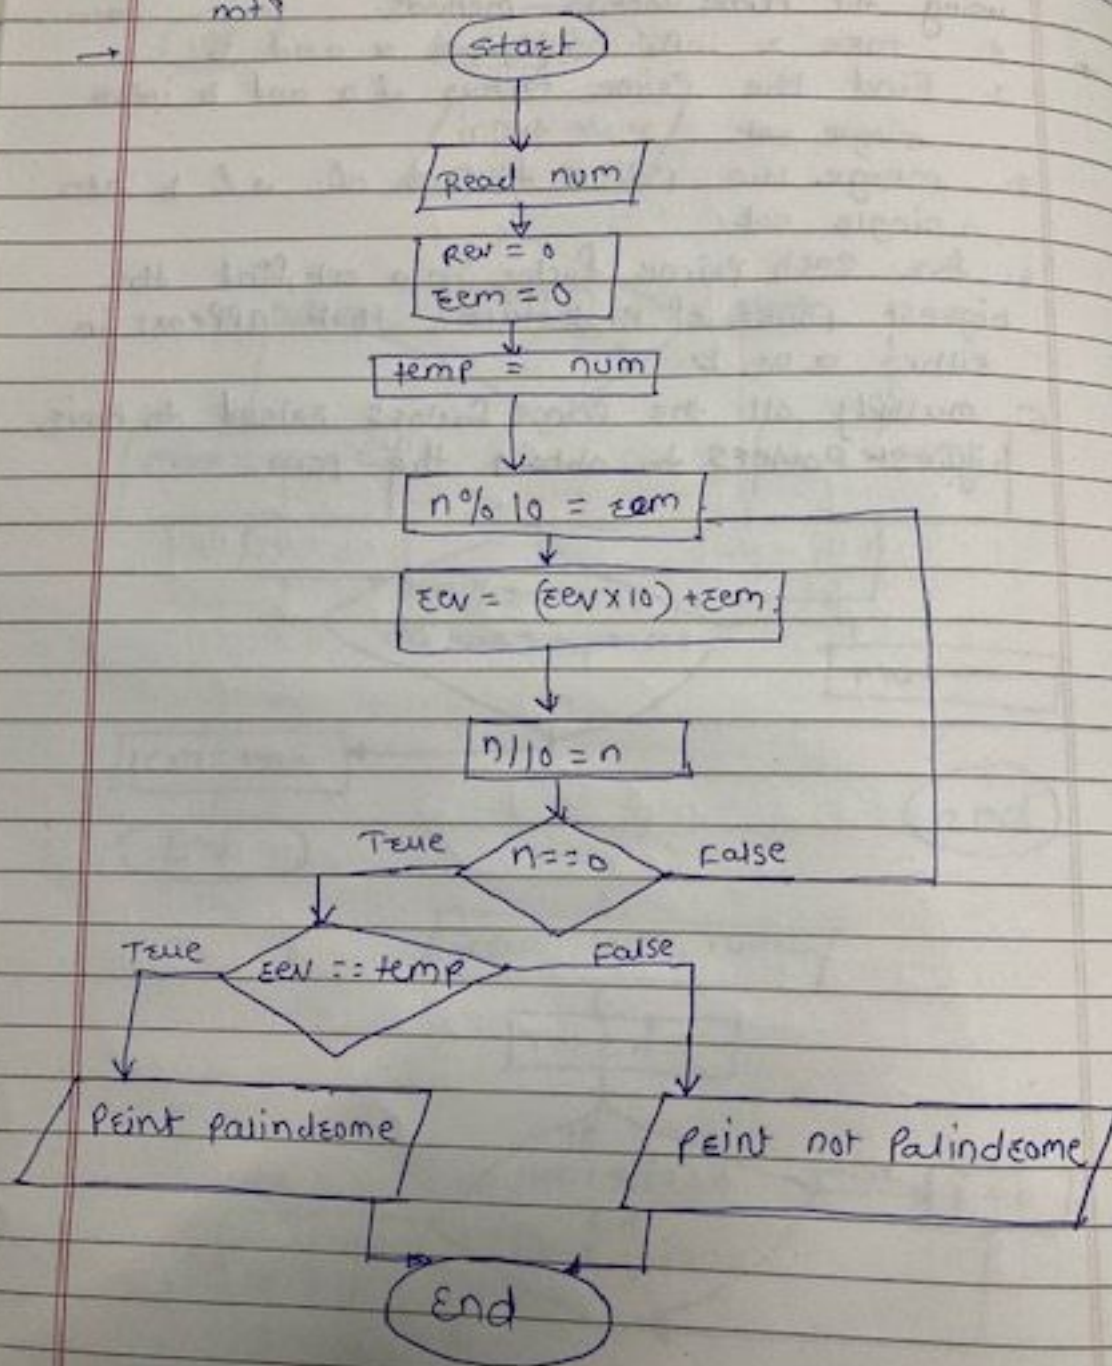 not?
Start
Read num
Rev = 0
rem = 0
temp = num
n % 10 = rem
rev = (rev x 10) + rem
n/10 = n
n==0
True
False
rev == temp
True
False
Print Palindrome
Print not Palindrome
End